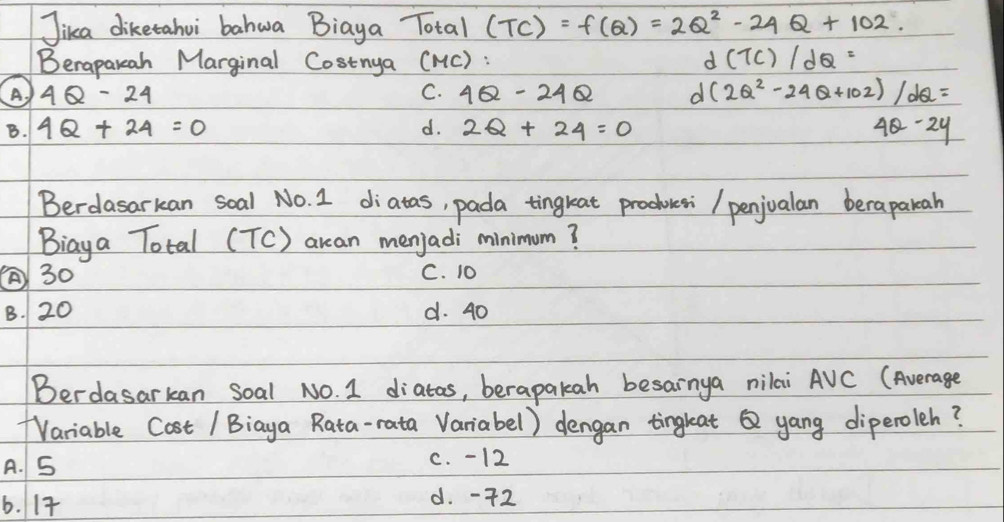 Jika diketahui bahwa Biaya Total (TC) = f(Q) = 2Q² - 24 Q + 102.
Berapakah Marginal Costnya (MC) :
d(TC)/dQ =
A. 4Q - 24
C. 4Q - 24Q
d(2Q² - 24Q + 102)/dQ =
B. 4Q + 24 = 0
d. 2Q + 24 = 0
4Q - 24
Berdasarkan soal No.1 diatas, pada tingkat produksi / penjualan berapakah
Biaya Total (TC) akan menjadi minimum ?
A 30
C. 10
B. 20
d. 40
Berdasarkan soal No.1 diatas, berapakah besarnya nilai AVC (Average
Variable Cost / Biaya Rata-rata Variabel) dengan tingkat Q yang diperoleh ?
A. 5
c. -12
b. 17
d. -72